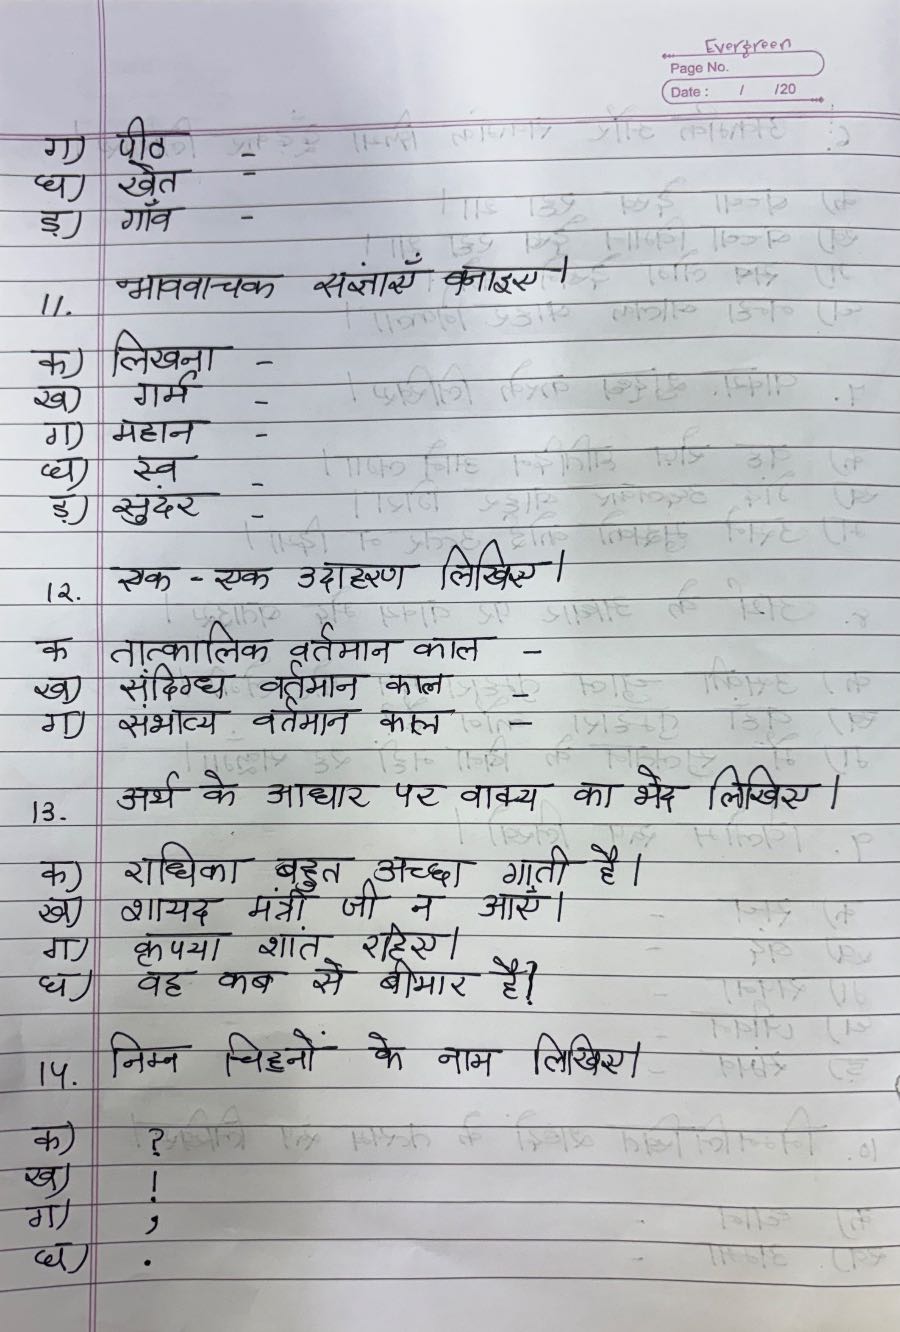 Evergreen
Page No.
Date : / /20
ग) पीठ -
घ) खेत -
ङ) गाँव -
11. भाववाचक संज्ञाएँ बनाइए।
क) लिखना -
ख) गर्म -
ग) महान -
घ) स्व -
ङ) सुंदर -
12. एक - एक उदाहरण लिखिए।
क तात्कालिक वर्तमान काल -
ख) संदिग्ध वर्तमान काल -
ग) संभाव्य वर्तमान काल -
13. अर्थ के आधार पर वाक्य का भेद लिखिए।
क) राधिका बहुत अच्छा गाती है।
ख) शायद मंत्री जी न आएँ।
ग) कृपया शांत रहिए।
घ) वह कब से बीमार है?
14. निम्न चिहनों के नाम लिखिए।
क) ?
ख) !
ग) ,
घ) .